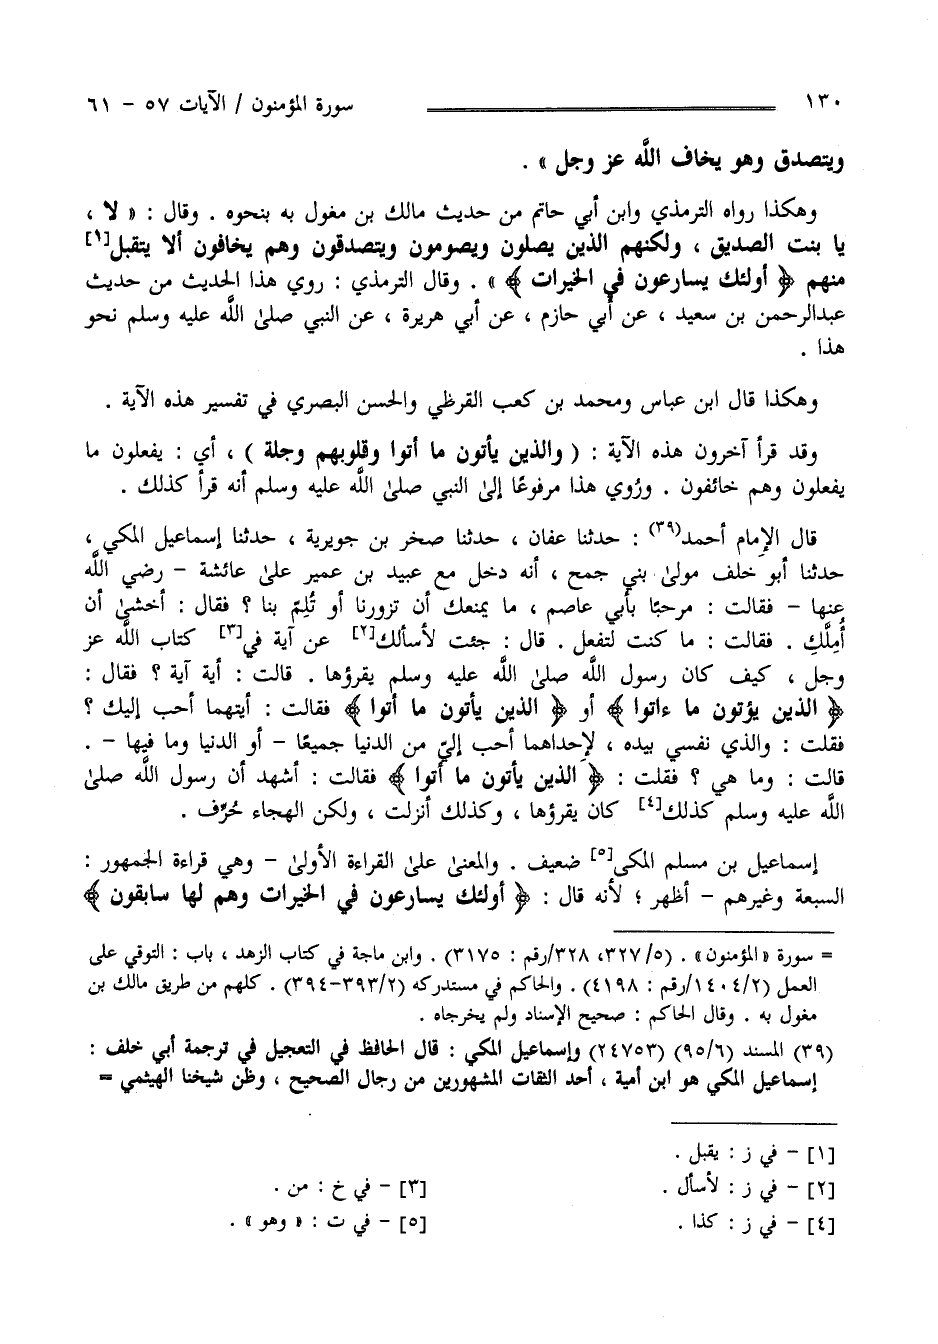 ١٣٠ سورة المؤمنون / الآيات ٥٧ - ٦١
ويتصدق وهو يخاف اللَّه عز وجل » .
وهكذا رواه الترمذي وابن أبي حاتم من حديث مالك بن مغول به بنحوه . وقال : « لا ،
يا بنت الصديق ، ولكنهم الذين يصلون ويصومون ويتصدقون وهم يخافون ألا يتقبل[١]
منهم ﴿ أولئك يسارعون في الخيرات ﴾ » . وقال الترمذي : روي هذا الحديث من حديث
عبدالرحمن بن سعيد ، عن أبي حازم ، عن أبي هريرة ، عن النبي صلىٰ اللَّه عليه وسلم نحو
هذا .
وهكذا قال ابن عباس ومحمد بن كعب القرظي والحسن البصري في تفسير هذه الآية .
وقد قرأ آخرون هذه الآية : ( والذين يأتون ما أتوا وقلوبهم وجلة ) ، أي : يفعلون ما
يفعلون وهم خائفون . ورُوي هذا مرفوعًا إلىٰ النبي صلىٰ اللَّه عليه وسلم أنه قرأ كذلك .
قال الإِمام أحمد(٣٩) : حدثنا عفان ، حدثنا صخر بن جويرية ، حدثنا إسماعيل المكي ،
حدثنا أبو خلف مولىٰ بني جمح ، أنه دخل مع عبيد بن عمير علىٰ عائشة - رضي اللَّه
عنها - فقالت : مرحبًا بأبي عاصم ، ما يمنعك أن تزورنا أو تُلِمّ بنا ؟ فقال : أخشىٰ أن
أُمِلَّكِ . فقالت : ما كنت لتفعل . قال : جئت لأسألك[٢] عن آية في[٣] كتاب اللَّه عز
وجل ، كيف كان رسول اللَّه صلىٰ اللَّه عليه وسلم يقرؤها . قالت : أية آية ؟ فقال :
﴿ الذين يؤتون ما ءاتوا ﴾ أو ﴿ الذين يأتون ما أتوا ﴾ فقالت : أيتهما أحب إليك ؟
فقلت : والذي نفسي بيده ، لإِحداهما أحب إليّ من الدنيا جميعًا - أو الدنيا وما فيها - .
قالت : وما هي ؟ فقلت : ﴿ الذين يأتون ما أتوا ﴾ فقالت : أشهد أن رسول اللَّه صلىٰ
اللَّه عليه وسلم كذلك[٤] كان يقرؤها ، وكذلك أنزلت ، ولكن الهجاء حُرِّف .
إسماعيل بن مسلم المكى[٥] ضعيف . والمعنىٰ علىٰ القراءة الأولىٰ - وهي قراءة الجمهور :
السبعة وغيرهم - أظهر ؛ لأنه قال : ﴿ أولئك يسارعون في الخيرات وهم لها سابقون ﴾
= سورة «المؤمنون» . (٣٢٧/٥، ٣٢٨/رقم : ٣١٧٥) . وابن ماجة في كتاب الزهد ، باب : التوقي على
العمل (١٤٠٤/٢/رقم : ٤١٩٨) . والحاكم في مستدركه (٣٩٣/٢-٣٩٤) . كلهم من طريق مالك بن
مغول به . وقال الحاكم : صحيح الإسناد ولم يخرجاه .
(٣٩) المسند (٩٥/٦) (٢٤٧٥٣) وإسماعيل المكي : قال الحافظ في التعجيل في ترجمة أبي خلف :
إسماعيل المكي هو ابن أمية ، أحد الثقات المشهورين من رجال الصحيح ، وظن شيخنا الهيثمي =
[١] - في ز : يقبل .
[٢] - في ز : لأسأل . [٣] - في خ : من .
[٤] - في ز : كذا . [٥] - في ت : « وهو » .